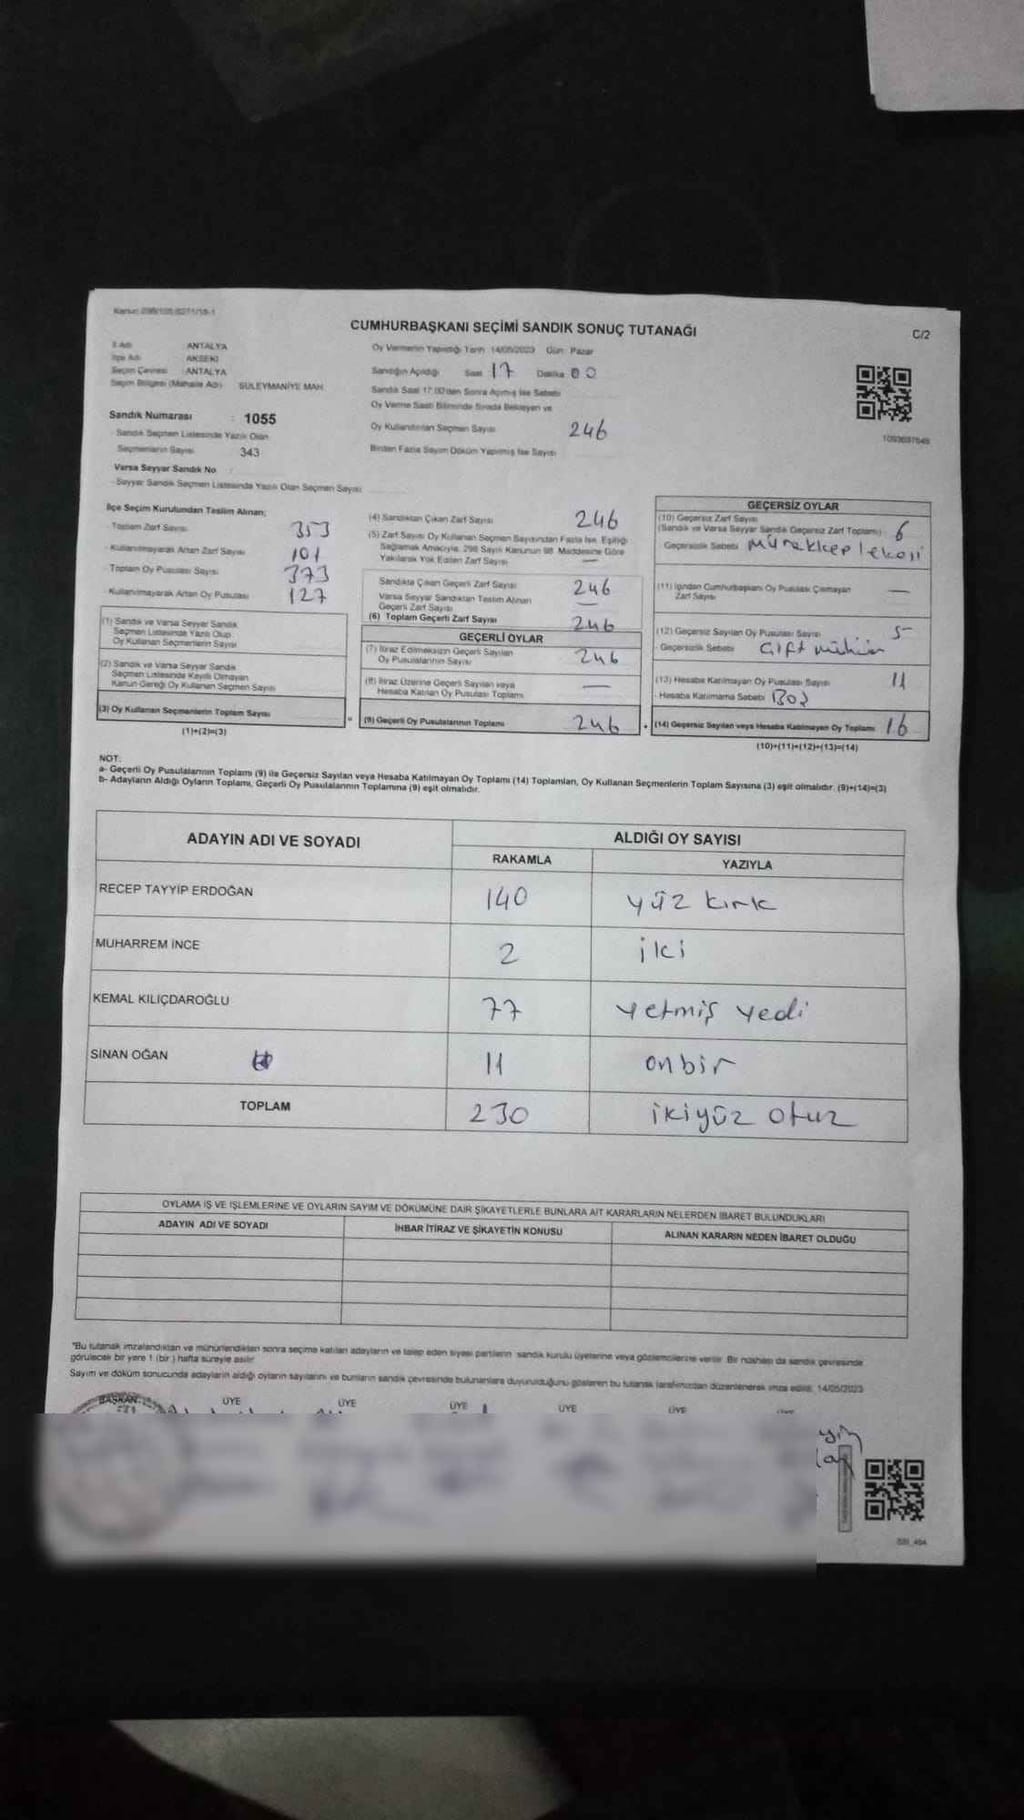 CUMHURBAŞKANI SEÇİMİ SANDIK SONUÇ TUTANAĞI
C/2
İl Adı ANTALYA
İlçe Adı AKSEKİ
Seçim Çevresi ANTALYA
Seçim Bölgesi (Mahalle Adı) SÜLEYMANİYE MAH.
Sandık Numarası : 1055
Sandık Seçmen Listesinde Yazılı Olan
Seçmenlerin Sayısı 343
Varsa Seyyar Sandık No
Seyyar Sandık Seçmen Listesinde Yazılı Olan Seçmen Sayısı
Oy Vermenin Yapıldığı Tarih 14/05/2023 Gün: Pazar
Sandığın Açıldığı Saat 17 Dakika 00
Sandık Saat 17:00'den Sonra Açılmış İse Sebebi
Oy Verme Saati Bitiminde Sırada Bekleyen ve
Oy Kullandırılan Seçmen Sayısı 246
Birden Fazla Sayım Döküm Yapılmış İse Sayısı
İlçe Seçim Kurulundan Teslim Alınan;
Toplam Zarf Sayısı 353
Kullanılmayarak Artan Zarf Sayısı 101
Toplam Oy Pusulası Sayısı 373
Kullanılmayarak Artan Oy Pusulası 127
(1) Sandık ve Varsa Seyyar Sandık
Seçmen Listesinde Yazılı Olup
Oy Kullanan Seçmenlerin Sayısı
(2) Sandık ve Varsa Seyyar Sandık
Seçmen Listesinde Kayıtlı Olmayan
Kanun Gereği Oy Kullanan Seçmen Sayısı
(3) Oy Kullanan Seçmenlerin Toplam Sayısı
(1)+(2)=(3)
(4) Sandıktan Çıkan Zarf Sayısı 246
(5) Zarf Sayısı Oy Kullanan Seçmen Sayısından Fazla İse, Eşitliği
Sağlamak Amacıyla, 298 Sayılı Kanunun 98. Maddesine Göre
Yakılarak Yok Edilen Zarf Sayısı —
Sandıkta Çıkan Geçerli Zarf Sayısı 246
Varsa Seyyar Sandıktan Teslim Alınan
Geçerli Zarf Sayısı —
(6) Toplam Geçerli Zarf Sayısı 246
GEÇERLİ OYLAR
(7) İtiraz Edilmeksizin Geçerli Sayılan
Oy Pusulalarının Sayısı 246
(8) İtiraz Üzerine Geçerli Sayılan veya
Hesaba Katılan Oy Pusulası Toplamı —
(9) Geçerli Oy Pusulalarının Toplamı 246
GEÇERSİZ OYLAR
(10) Geçersiz Zarf Sayısı
(Sandık ve Varsa Seyyar Sandık Geçersiz Zarf Toplamı) 6
Geçersizlik Sebebi Mürekkep lekesi
(11) İçinden Cumhurbaşkanı Oy Pusulası Çıkmayan
Zarf Sayısı —
(12) Geçersiz Sayılan Oy Pusulası Sayısı 5
Geçersizlik Sebebi Çift mühür
(13) Hesaba Katılmayan Oy Pusulası Sayısı 11
Hesaba Katılmama Sebebi Boş
(14) Geçersiz Sayılan veya Hesaba Katılmayan Oy Toplamı 16
(10)+(11)+(12)+(13)=(14)
NOT:
a- Geçerli Oy Pusulalarının Toplamı (9) ile Geçersiz Sayılan veya Hesaba Katılmayan Oy Toplamı (14) Toplamları, Oy Kullanan Seçmenlerin Toplam Sayısına (3) eşit olmalıdır. (9)+(14)=(3)
b- Adayların Aldığı Oyların Toplamı, Geçerli Oy Pusulalarının Toplamına (9) eşit olmalıdır.
ADAYIN ADI VE SOYADI
ALDIĞI OY SAYISI
RAKAMLA YAZIYLA
RECEP TAYYİP ERDOĞAN 140 yüz kırk
MUHARREM İNCE 2 iki
KEMAL KILIÇDAROĞLU 77 yetmiş yedi
SİNAN OĞAN 11 onbir
TOPLAM 230 ikiyüz otuz
OYLAMA İŞ VE İŞLEMLERİNE VE OYLARIN SAYIM VE DÖKÜMÜNE DAİR ŞİKAYETLERLE BUNLARA AİT KARARLARIN NELERDEN İBARET BULUNDUKLARI
ADAYIN ADI VE SOYADI İHBAR İTİRAZ VE ŞİKAYETİN KONUSU ALINAN KARARIN NEDEN İBARET OLDUĞU
*Bu tutanak imzalandıktan ve mühürlendikten sonra seçime katılan adayların ve talep eden siyasi partilerin sandık kurulu üyelerine veya gözlemcilerine verilir. Bir nüshası da sandık çevresinde
görülecek bir yere 1 (bir) hafta süreyle asılır.
Sayım ve döküm sonucunda adayların aldığı oyların sayılarını ve bunların sandık çevresinde bulunanlara duyurulduğunu gösteren bu tutanak tarafımızdan düzenlenerek imza edildi. 14/05/2023
BAŞKAN ÜYE ÜYE ÜYE ÜYE ÜYE